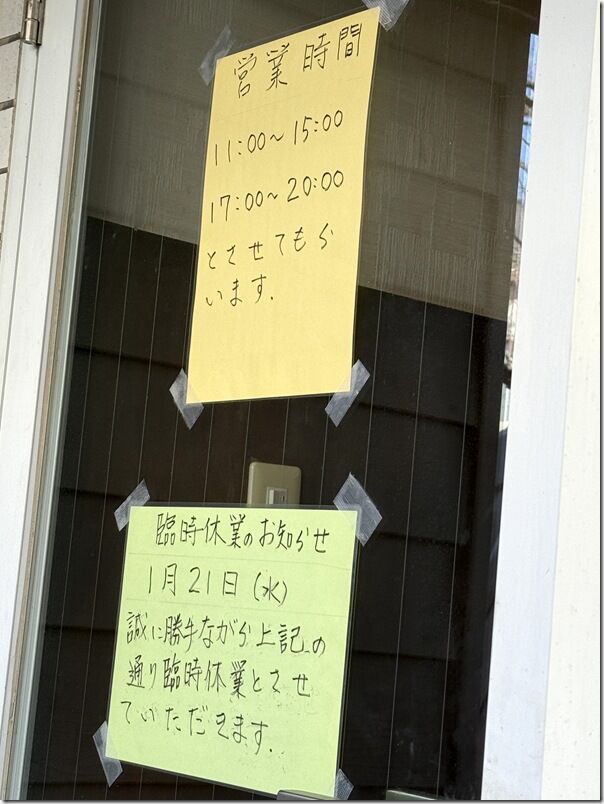 営業時間
11:00~15:00
17:00~20:00
とさせてもら
います.
臨時休業のお知らせ
1月21日(水)
誠に勝手ながら上記の
通り臨時休業とさせ
ていただきます.